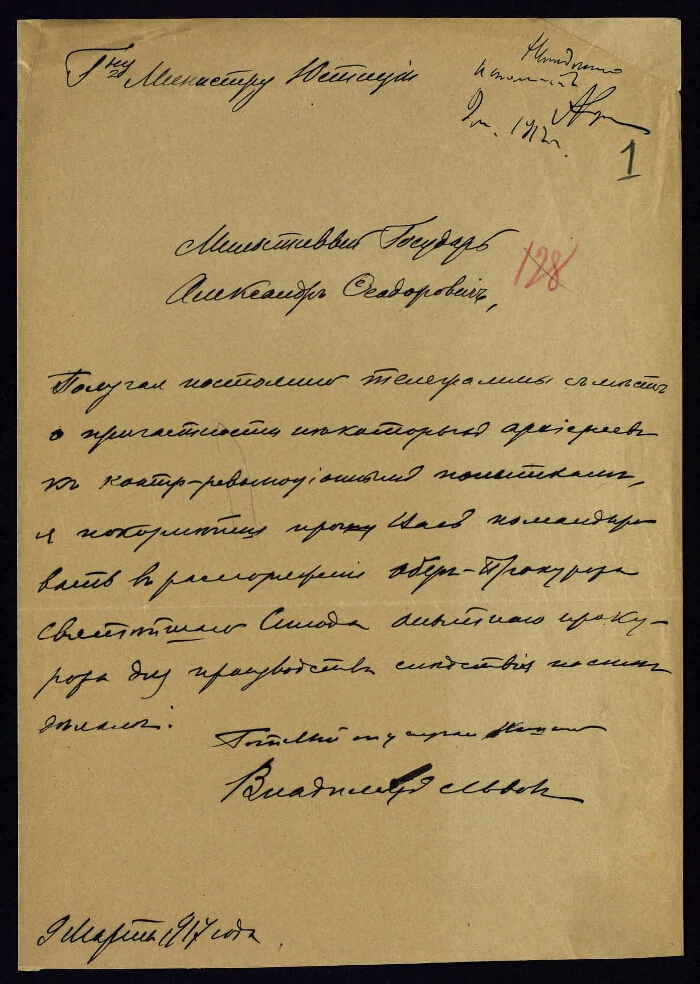 Г<sup>ну</sup> Министру Юстиціи
9 м. 1917 г.
1
Милостивый Государь
128
Александръ Ѳеодоровичъ,
Получая постоянно телеграммы съ мѣстъ
о причастности нѣкоторыхъ архіереевъ
къ контр-революціоннымъ попыткамъ,
я покорнѣйше прошу Васъ командиро
вать въ распоряженіе Обер-Прокурора
Святѣйшаго Синода опытнаго проку-
рора для производства слѣдствія по симъ
дѣламъ.
Готовый къ услугам
Владимиръ Львов
9 Марта 1917 года